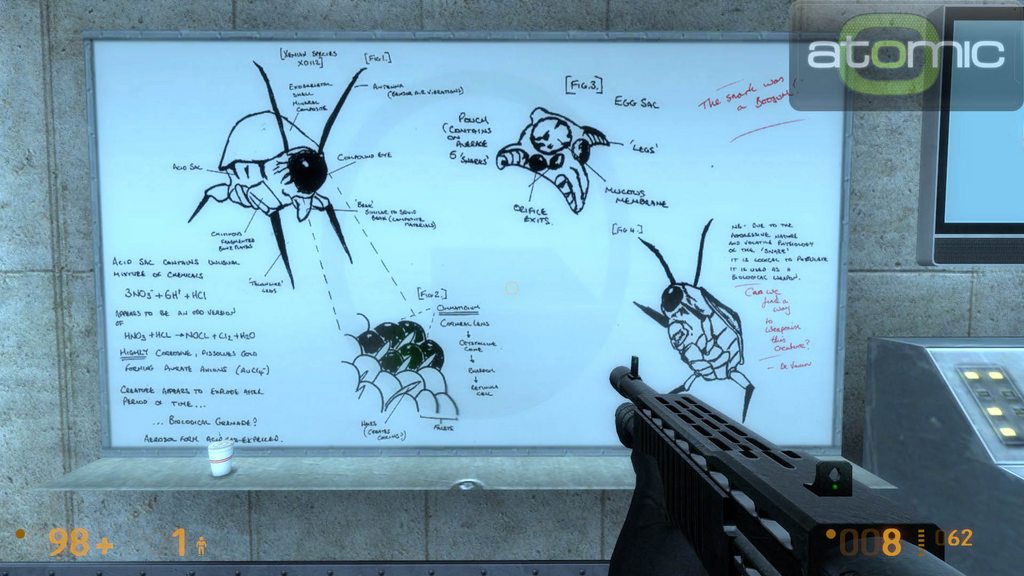 atomic
[XENIAN SPECIES
X0112]
[FIG 1.]
EXOSKELETAL
SHELL
MINERAL
COMPOSITE
ANTENNA
(SENSOR AIR VIBRATIONS)
ACID SAC
COMPOUND EYE
'BEAK'
SIMILAR TO SQUID
BEAK (COMPOSITE
MATERIALS)
CHITINOUS
FRAGMENTED
BONE PLATES
'TALON LIKE'
LEGS
ACID SAC CONTAINS UNUSUAL
MIXTURE OF CHEMICALS
3NO3- + 6H+ + HCl
APPEARS TO BE AN ODD VERSION
OF
HNO3 + HCL → NOCL + CL2 + H2O
HIGHLY CORROSIVE, DISSOLVES GOLD
FORMING AURATE ANIONS (AuCl4-)
CREATURE APPEARS TO EXPLODE AFTER
PERIOD OF TIME...
... BIOLOGICAL GRENADE?
AEROSOL FORM ACID EXPELLED.
[FIG 2.]
OMMATIDIUM
CORNEAL LENS
CRYSTALLINE
CONE
RHABDOM
RETINULA
CELL
HAIRS
(CREATES
CASING?)
FACETS
[FIG.3.]
EGG SAC
POUCH
(CONTAINS
ON
AVERAGE
5 'SNARKS')
'LEGS'
MUCOUS
MEMBRANE
ORIFICE
EXITS.
The snark was
a Boojum!
[FIG 4.]
NB: DUE TO THE
AGGRESSIVE NATURE
AND VOLATILE PHYSIOLOGY
OF THE 'SNARK'
IT IS LOGICAL TO POSTULATE
IT IS USED AS A
BIOLOGICAL WEAPON.
Can we
find a
way
to
weaponise
this
creature?
98+ 1
008 062